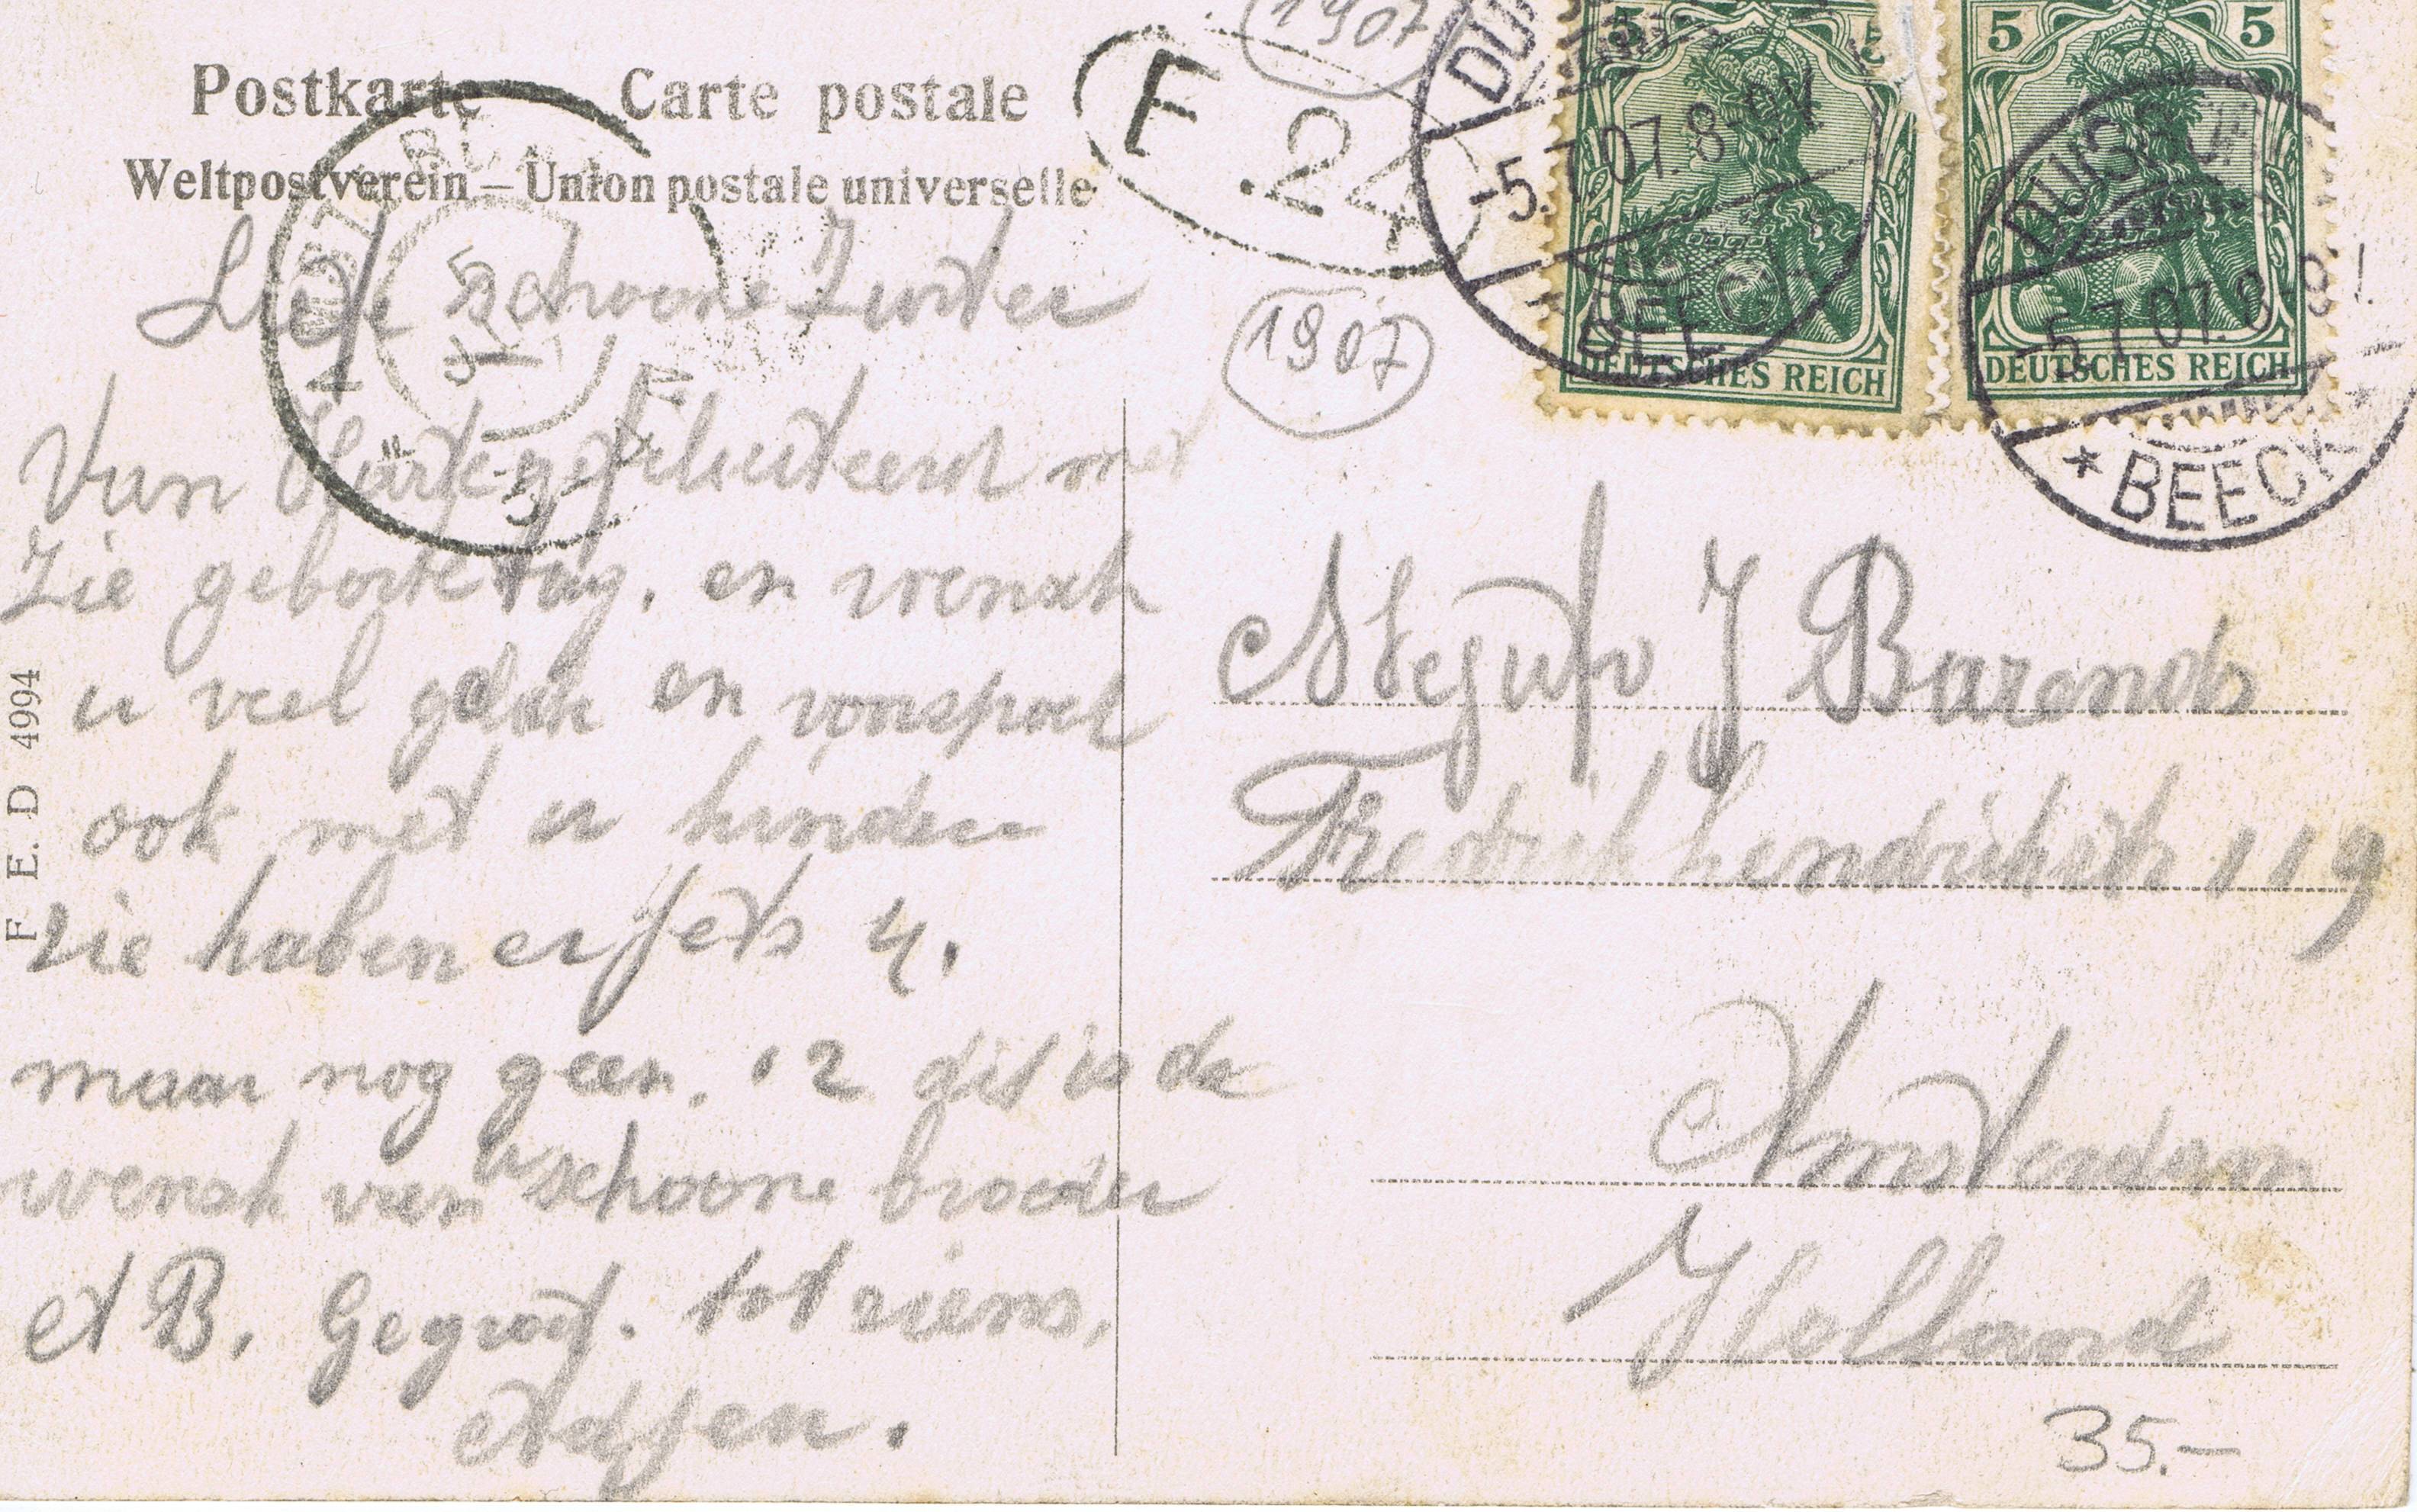 Postkarte Carte postale
Weltpostverein – Union postale universelle
Liefe schoone Zuster
Van Harte gefiliciteerd met
Zie geborte tag, en wensch
u veel geluk en voorspoet
ook met u kinder
zie haben er jets 4.
maar nog geen. 12 dit is de
wensch van u schoone broeder
A B. Gegroet. tot ziens,
Adjen.
F. E. D 4994
1907
F. 24
1907
5 5
5 5
DEUTSCHES REICH
DEUTSCHES REICH
-5.7.07.8-9V
BEECK
DUISBURG
-5.7.07.8-9V
* BEECK *
AMSTERDAM
Mejufr J Barends
Fredrikhendrikstr 119
Amsterdam
Holland
35.-